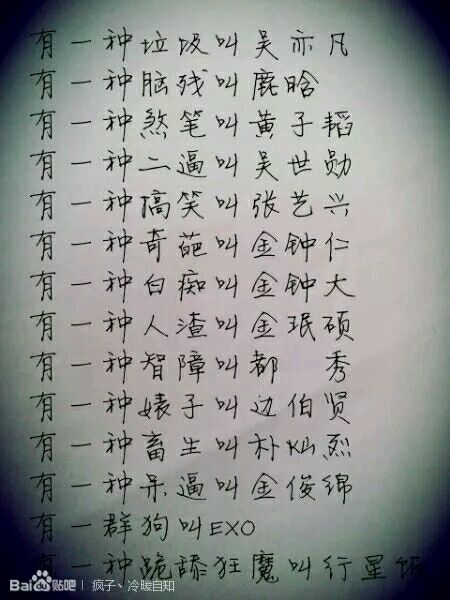 有一种垃圾叫吴亦凡
有一种脑残叫鹿晗
有一种煞笔叫黄子韬
有一种二逼叫吴世勋
有一种搞笑叫张艺兴
有一种奇葩叫金钟仁
有一种白痴叫金钟大
有一种人渣叫金珉硕
有一种智障叫都 秀
有一种婊子叫边伯贤
有一种畜生叫朴灿烈
有一种呆逼叫金俊绵
有一群狗叫EXO
有一种跪舔狂魔叫行星饭
Bai贴吧 | 疯子丶冷暖自知